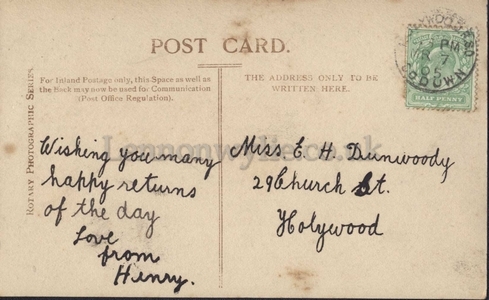 POST CARD.
For Inland Postage only, this Space as well as
the Back may now be used for Communication
(Post Office Regulation).
THE ADDRESS ONLY TO BE
WRITTEN HERE.
ROTARY PHOTOGRAPHIC SERIES.
Wishing you many
happy returns
of the day
Love
from
Henry.
Miss. E. H. Dunwoody
29 Church St.
Holywood
HALF PENNY
PM
7
CO DOWN
Lennonwylie.co.uk